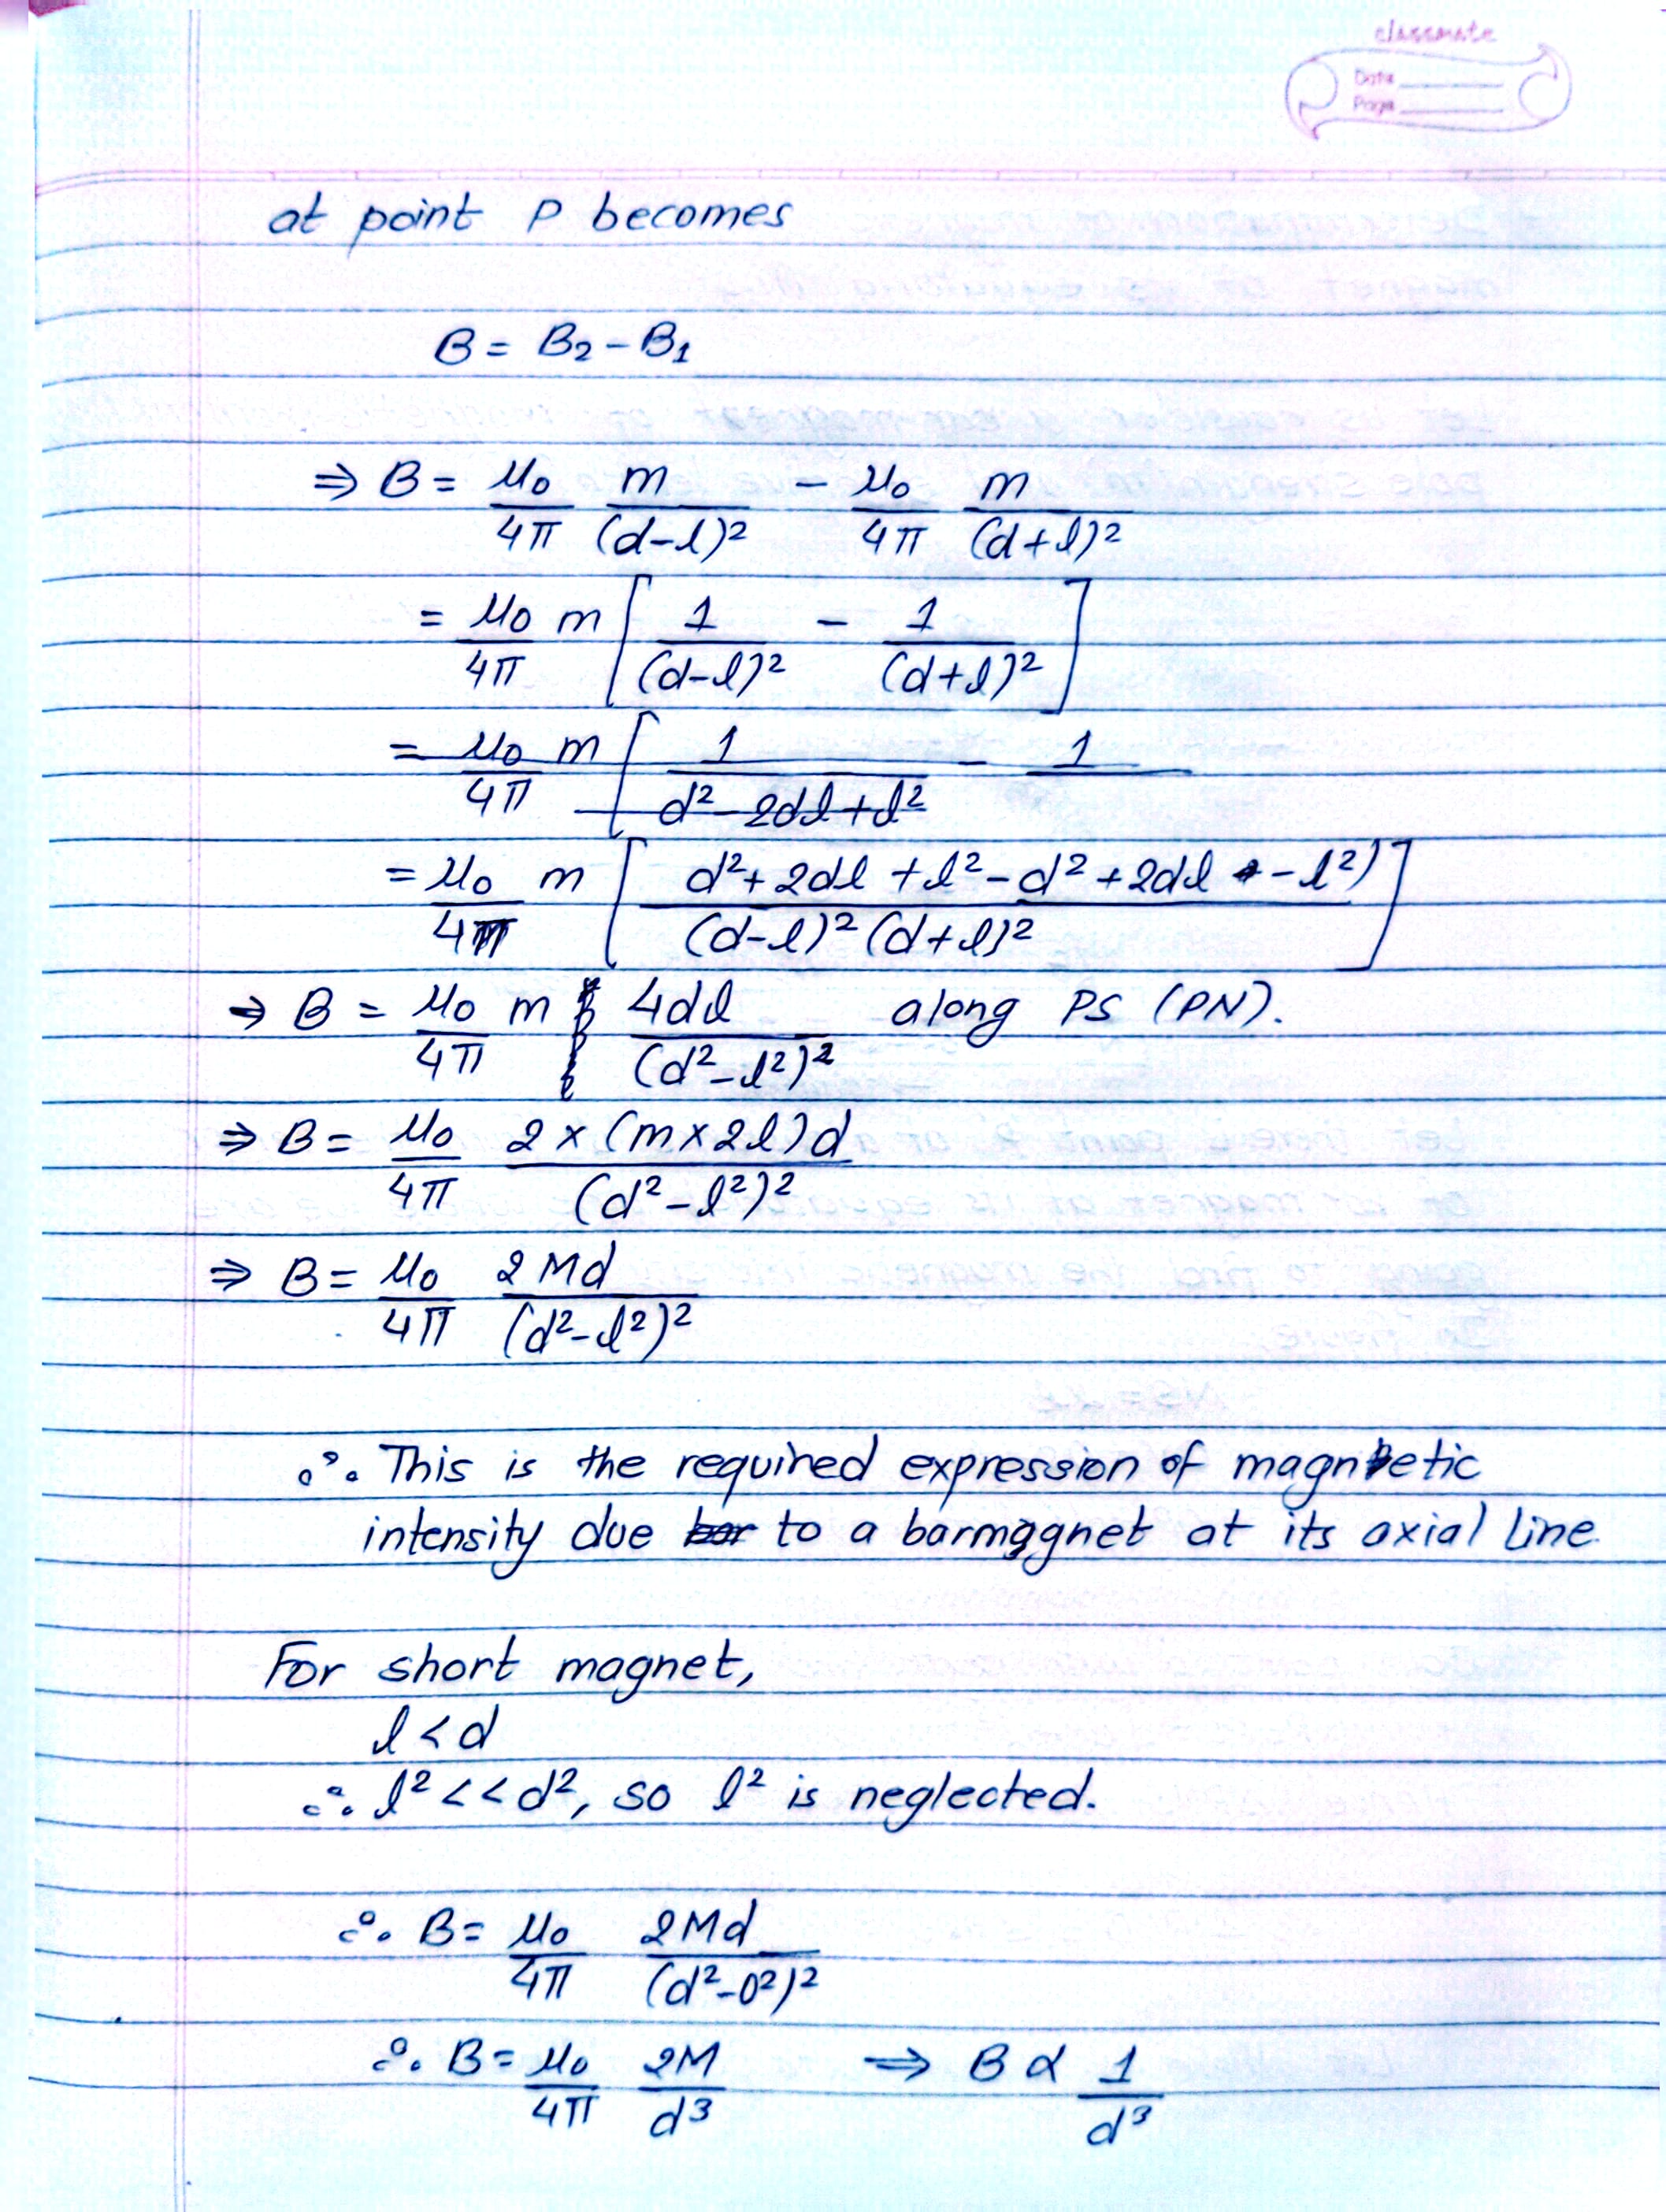 classmate
Date
Page
at point P becomes
B = B₂ - B₁
⇒ B = μ₀/4π m/(d-l)² - μ₀/4π m/(d+l)²
= μ₀/4π m [1/(d-l)² - 1/(d+l)²]
= μ₀/4π m [1/d²-2dl+l² - 1
= μ₀/4π m [d²+2dl+l²-d²+2dl-l²)/(d-l)²(d+l)²]
→ B = μ₀/4π m 4dl/(d²-l²)² along PS (PN).
⇒ B = μ₀/4π 2×(m×2l)d/(d²-l²)²
⇒ B = μ₀/4π 2Md/(d²-l²)²
∴ This is the required expression of magnetic
intensity due bar to a barmagnet at its axial line.
For short magnet,
l<d
∴ l²<<d², so l² is neglected.
∴ B = μ₀/4π 2Md/(d²-0²)²
∴ B = μ₀/4π 2M/d³ ⇒ B ∝ 1/d³